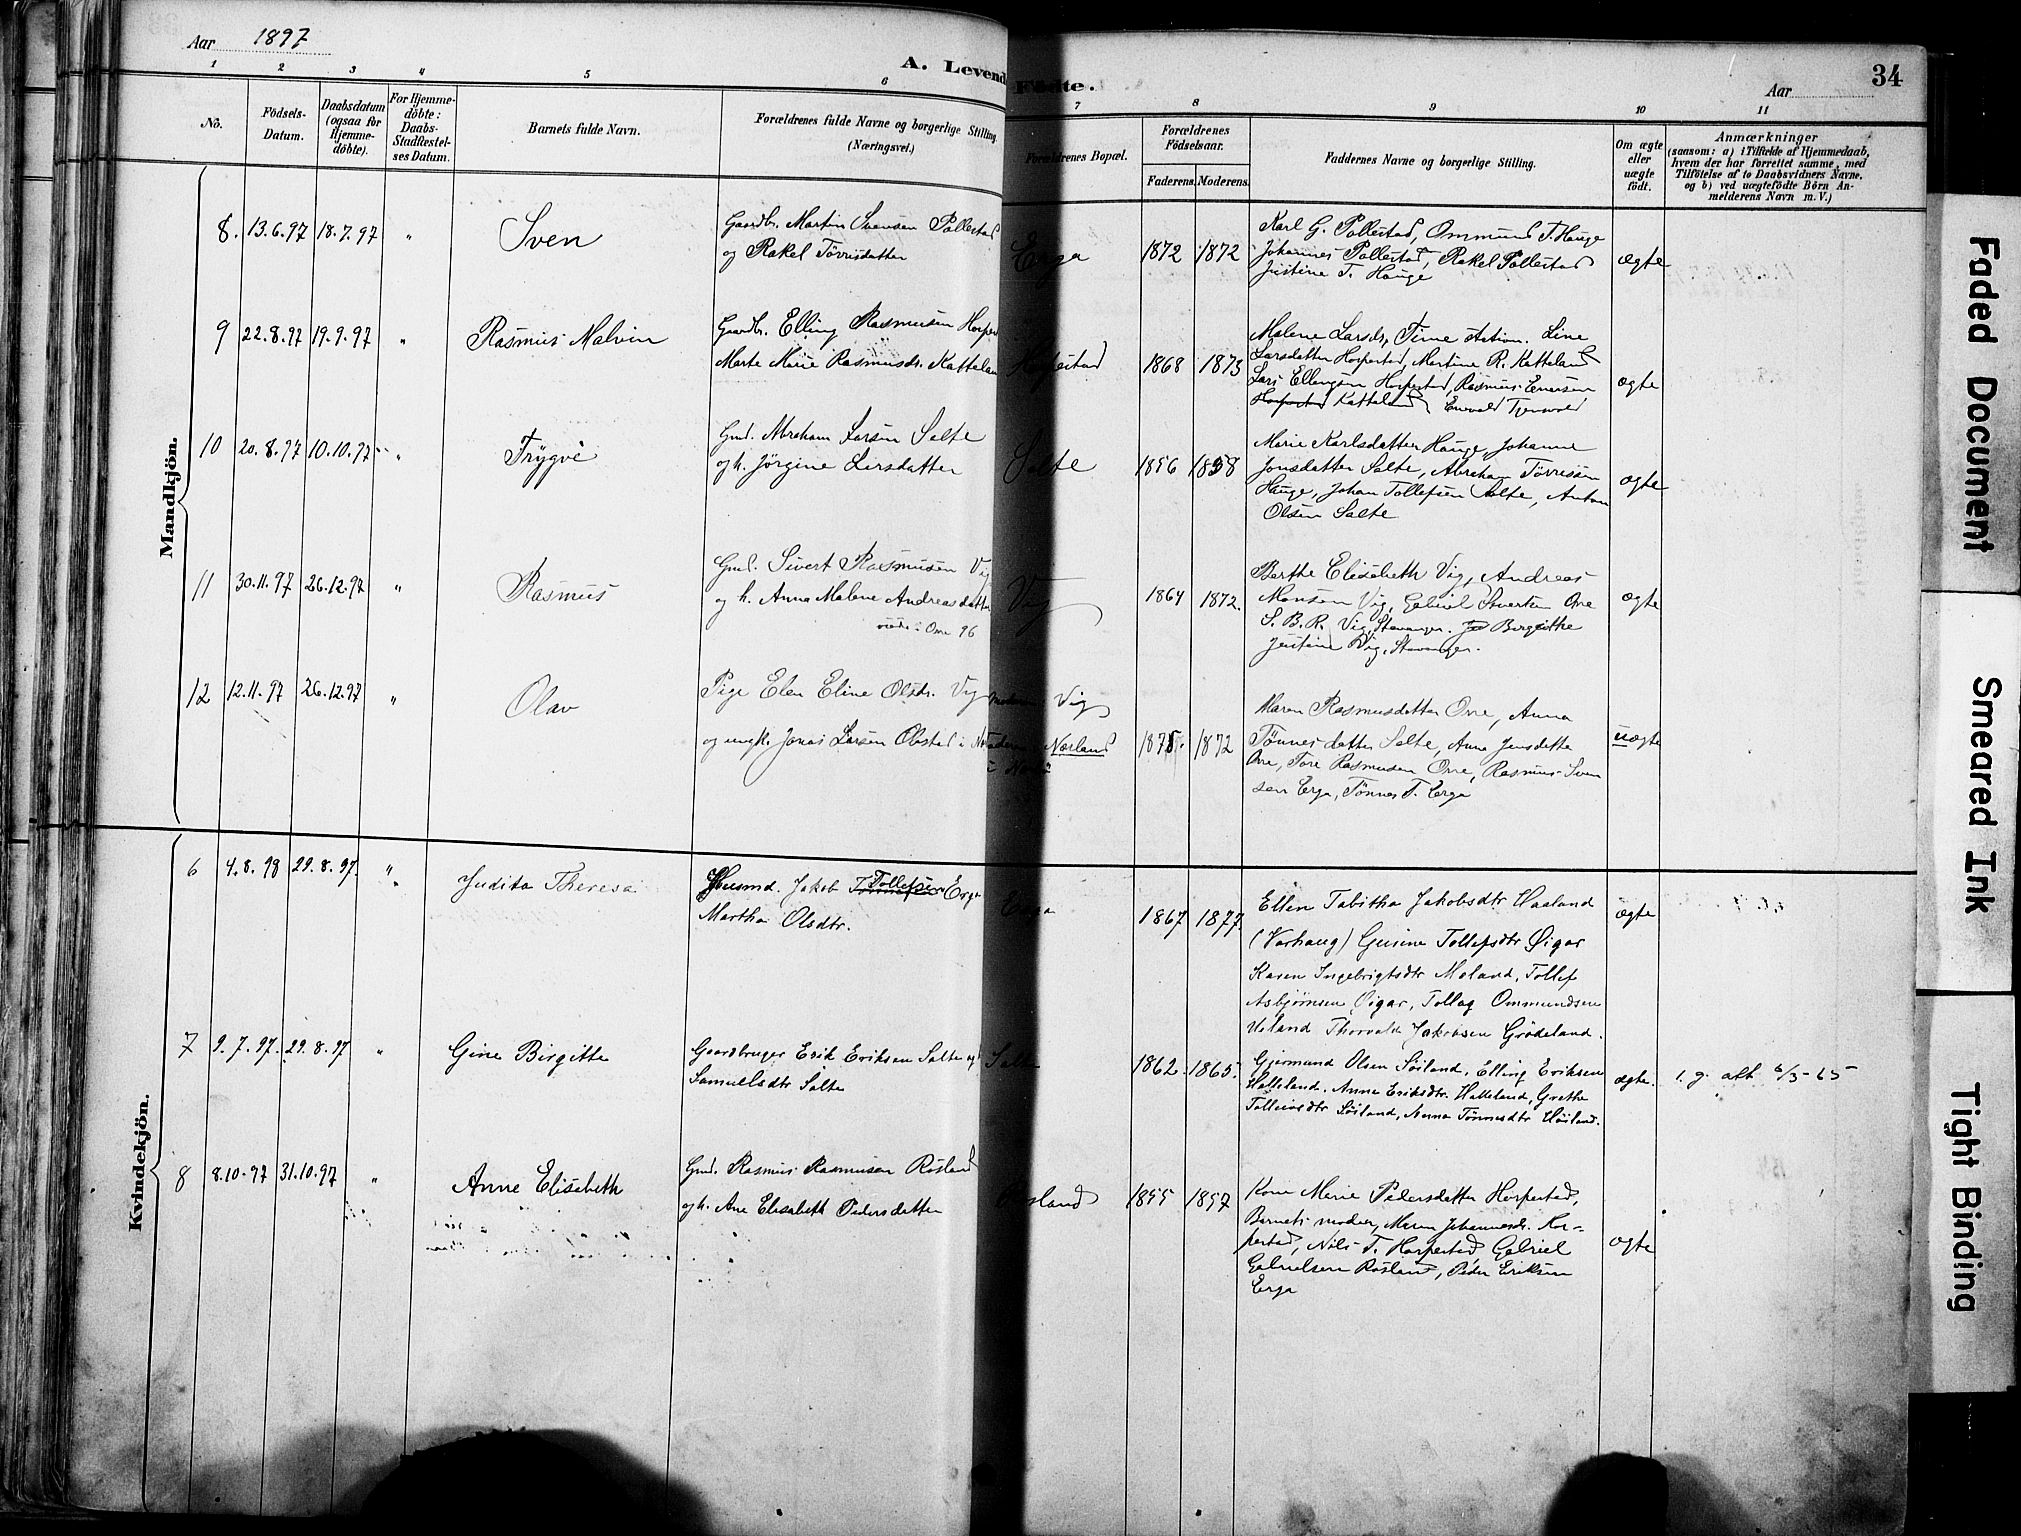 Aar 1897
A. Levende Fødte.
Aar
34
1 2 3 4 5 6 7 8 9 10 11
No.
Födsels-Datum.
Daabsdatum (ogsaa for Hjemme-döbte).
For Hjemme-döbte: Daabs-Stadfæstel-ses Datum.
Barnets fulde Navn.
Forældrenes fulde Navne og borgerlige Stilling. (Næringsvei.)
Forældrenes Bopæl.
Forældrenes Födselsaar.
Faderens. Moderens.
Faddernes Navne og borgerlige Stilling.
Om ægte eller uægte födt.
Anmærkninger
(saasom: a) i Tilfælde af Hjemmedaab,
hvem der har forrettet samme, med
Tilföielse af to Daabsvidners Navne.
og b) ved uægtefödte Börn An-
melderens Navn m. V.)
Mandkjön.
8. 13.6.97 18.7.97 " Sven
Gaardbr. Martin Svensen Pollestad
og Rakel Tørrisdatter
Erga 1872 1872
Karl G. Pollestad, Ommund T. Hauge
Johannes Pollestad, Rakel Pollestad
Justine T. Hauge
ægte
9 22.8.97 19.9.97 " Rasmus Malvin
Gaardbr. Elling Rasmusen Horpe
Marte Marie Rasmusdr. Kattelan
Horpestad 1868 1873
Malene Larsdr, Time station. Line
Larsdatter Horpestad, Martine R. Katteland
Lars Ellingsen Horpestad, Rasmus Enersen
Horpestad Katteland, Enevald Tjemsvold
ægte
10 20.8.97 10.10.97 " Trygve
Gmd. Abraham Larsen Salte
og h. Jørgine Larsdatter
Salte 1856 1858
Marie Karlsdatter Hauge, Johanne
Jonsdatter Salte, Abraham Tørresen
Hauge, Johan Tollefsen Salte, Anton
Olsen Salte
ægte
11 30.11.97 26.12.97 " Rasmus
Gmd. Sivert Rasmusen Vig
og h. Anna Malene Andreasdatter
viede i Orre 96
Vig 1864 1872.
Berthe Elisabeth Vig, Andreas
Monsen Vig, Gabriel Sivertsen Orre
S. B. R. Vig, Stavanger. Birgithe
Justine Vig, Stavanger.
ægte
12 12.11.97 26.12.97 " Olav
Pige Elen Eline Olsdr. Vig
og ungk. Jonas Larsen Obstad i
Vig
Norland
1875. 1872
Maren Rasmusdatter Orre, Anna
Tønnesdatter Salte, Anna Jensdatter
Orre, Tore Rasmusen Orre, Rasmus Sven
sen Erga, Tønnes T. Erga
uægte
Kvindekjön.
6 4.8.98 29.8.97. " Judita Theresa
Husmd. Jakob Tollefsen Erga
Martha Olsdtr.
Erga 1867 1877.
Ellen Tabitha Jakobsdtr Haaland
(Varhaug) Gusine Tollefsdtr Øigar
Karen Ingebrigtsdtr Meland, Tollef
Asbjørnsen Øigar, Tollag Ommundsen
Ueland Thorvald Jakobsen Grødeland.
ægte
7 9.7.97. 29.8.97 " Gine Birgitte
Gaardbruger Erik Eriksen Salte og
Samuelsdtr Salte
Salte 1862. 1865.
Gjermund Olsen Søiland, Elling Eriksen
Halleland. Anne Eriksdtr. Halleland, Grethe
Tolleivsdtr Søiland, Anna Tønnesdtr Høiland.
ægte.
1. g. att. 6/3-65
8 8.10.97 31.10.97 " Anne Elisabeth
Gmd. Rasmus Rasmusen Rosland
og h. Ane Elisabeth Pedersdatter
Rosland 1855 1857
Marie Pedersdatter Horpestad,
Barnets moder, Maren Johannesdr. Hor-
pestad, Nils T. Horpestad, Gabriel
Gabrielsen Rosland, Peder Eriksen
Erga
ægte
Faded Document
Smeared Ink
Tight Binding